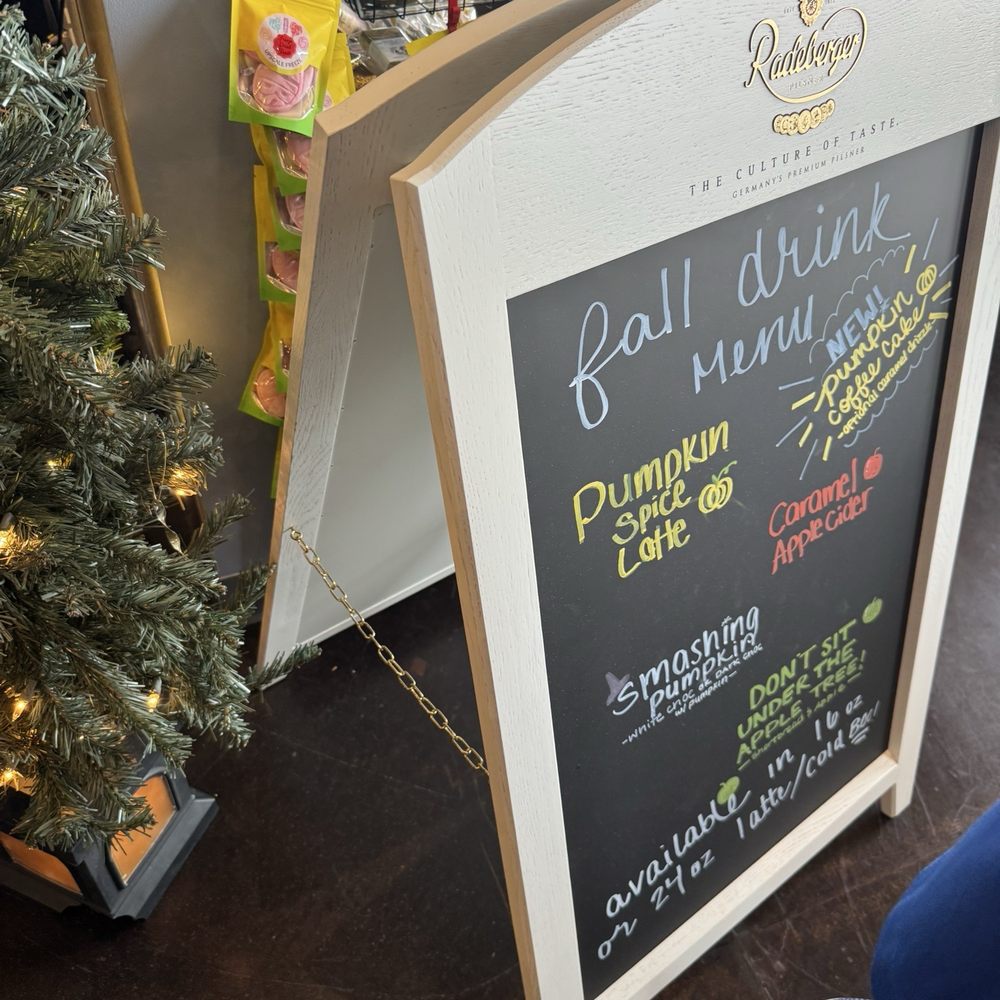 UPSCALE FREEZE
Radeberger
PILSNER
THE CULTURE OF TASTE.
GERMANY'S PREMIUM PILSNER
fall drink
menu
NEW!!
pumpkin
coffee cake
-optional caramel drizzle-
Pumpkin
Spice
Latte
Caramel
Apple Cider
smashing
pumpkin
-white choc or dark choc
w/ pumpkin-
DON'T SIT
UNDER THE
APPLE TREE!
-shortbread & apple-
available in 16 oz
or 24 oz latte/cold